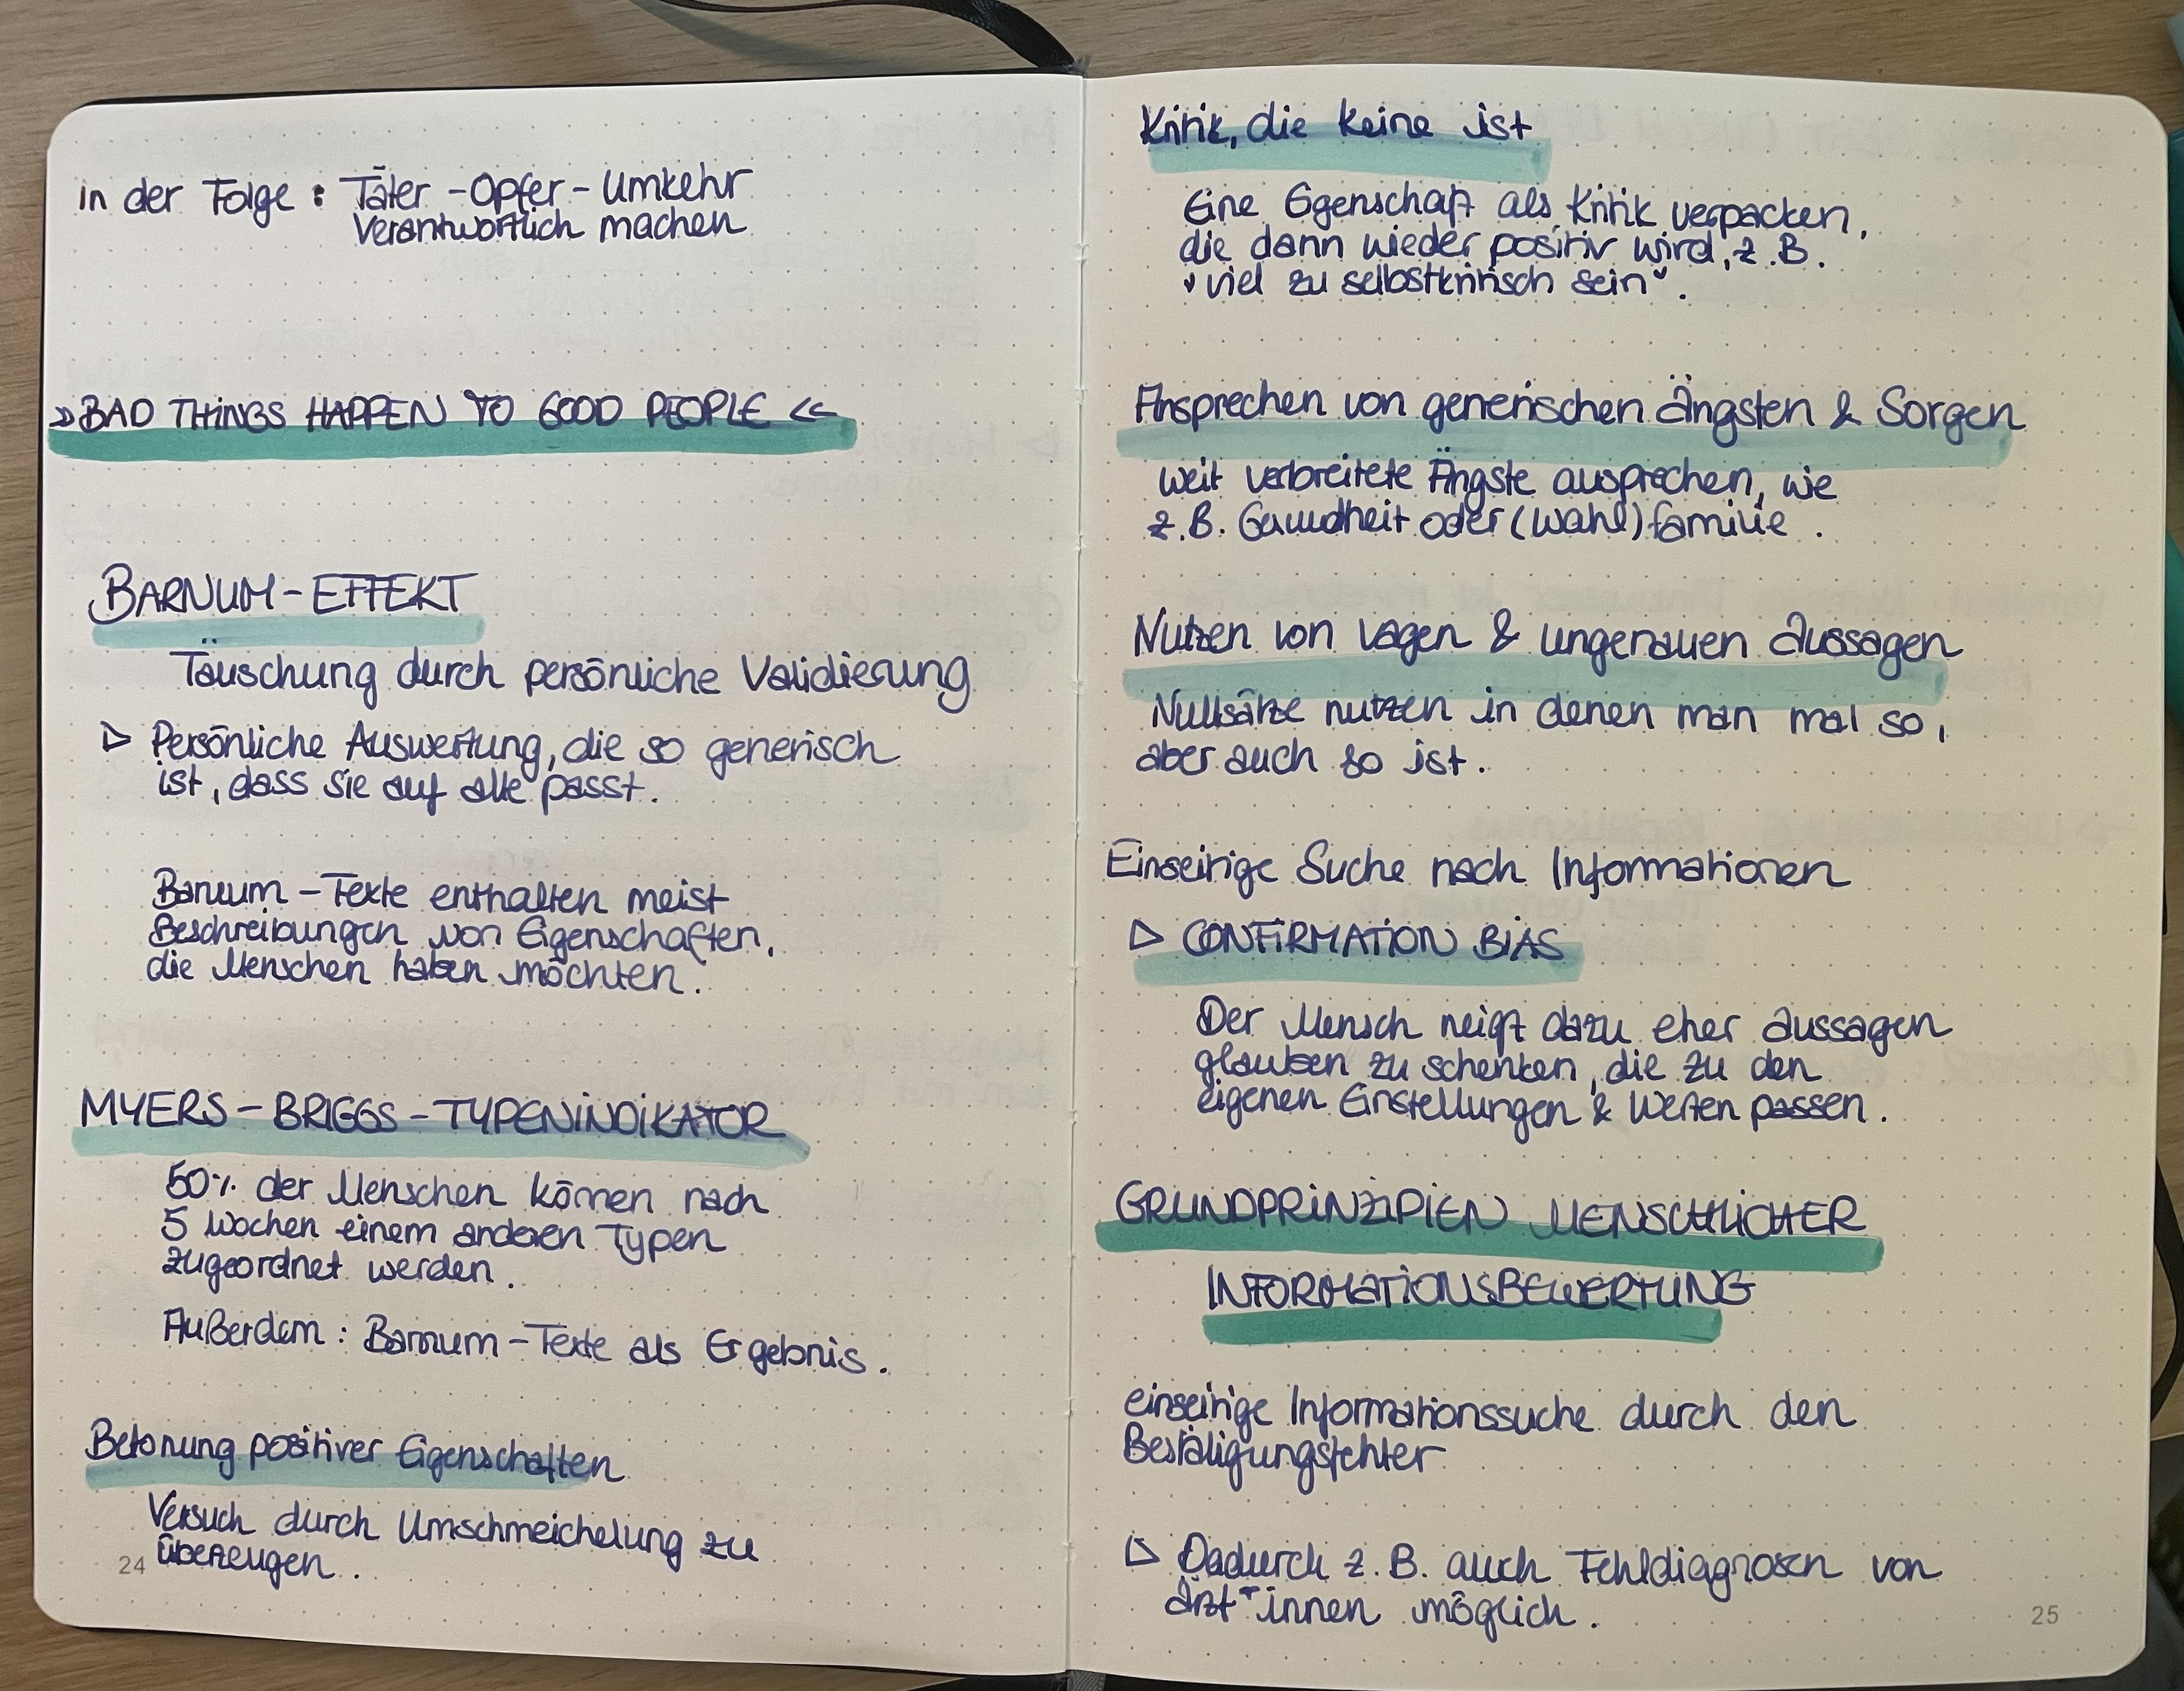 in der Folge : Täter-Opfer-Umkehr
Verantwortlich machen
»BAD THINGS HAPPEN TO GOOD PEOPLE«
BARNUM-EFFEKT
Täuschung durch persönliche Validierung
▷ Persönliche Auswertung, die so generisch
ist, dass sie auf alle passt.
Barnum-Texte enthalten meist
Beschreibungen von Eigenschaften,
die Menschen haben möchten.
MYERS-BRIGGS-TYPENINDIKATOR
50% der Menschen können nach
5 Wochen einem anderen Typen
zugeordnet werden.
Außerdem: Barnum-Texte als Ergebnis.
Betonung positiver Eigenschaften
Versuch durch Umschmeichelung zu
überzeugen.
24
Kritik, die keine ist
Eine Eigenschaft als Kritik verpacken,
die dann wieder positiv wird, z.B.
"viel zu selbstkritisch sein".
Ansprechen von generischen Ängsten & Sorgen
weit verbreitete Ängste aussprechen, wie
z.B. Gesundheit oder (Wahl)familie.
Nutzen von vagen & ungenauen Aussagen
Nullsätze nutzen in denen man mal so,
aber auch so ist.
Einseitige Suche nach Informationen
▷ CONFIRMATION BIAS
Der Mensch neigt dazu eher Aussagen
glauben zu schenken, die zu den
eigenen Einstellungen & Werten passen.
GRUNDPRINZIPIEN MENSCHLICHER
INFORMATIONSBEWERTUNG
einseitige Informationssuche durch den
Bestätigungsfehler
▷ Dadurch z.B. auch Fehldiagnosen von
Ärzt*innen möglich.
25